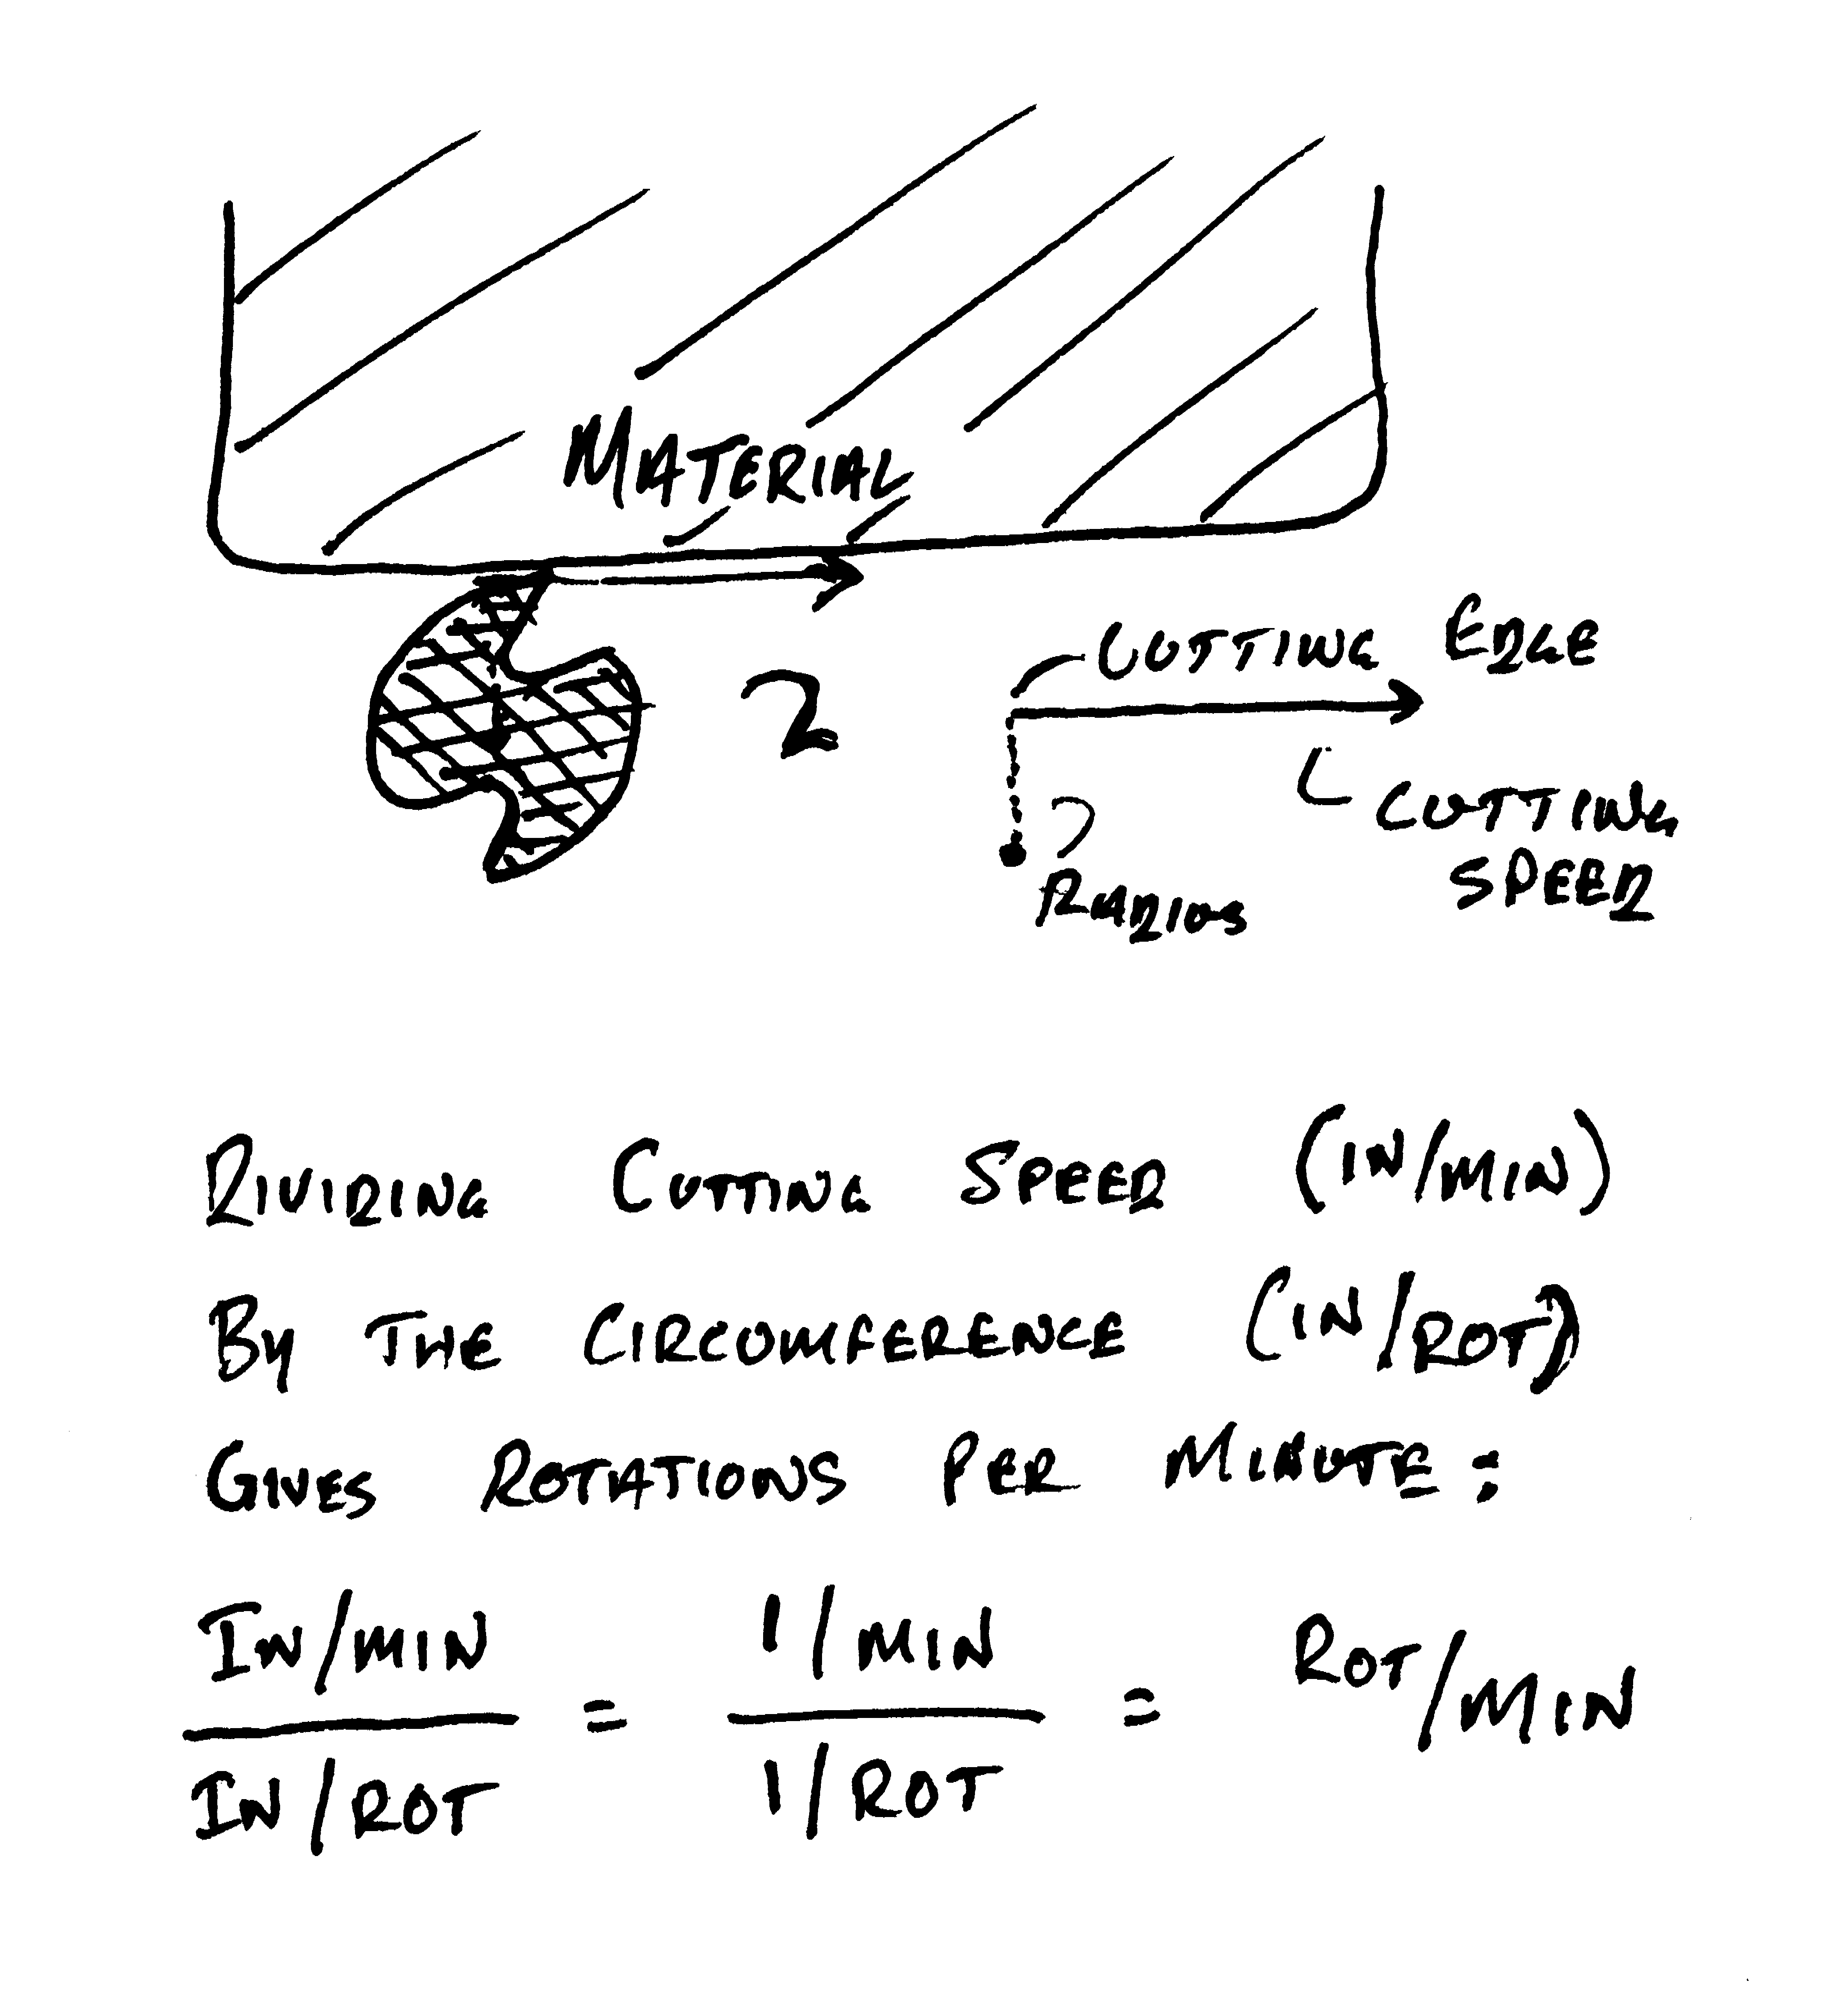 MATERIAL
2
CUTTING EDGE
CUTTING
SPEED
RADIUS
DIVIDING CUTTING SPEED (IN/MIN)
BY THE CIRCUMFERENCE (IN/ROT)
GIVES ROTATIONS PER MINUTE:
IN/MIN 1/MIN
= = ROT/MIN
IN/ROT 1/ROT